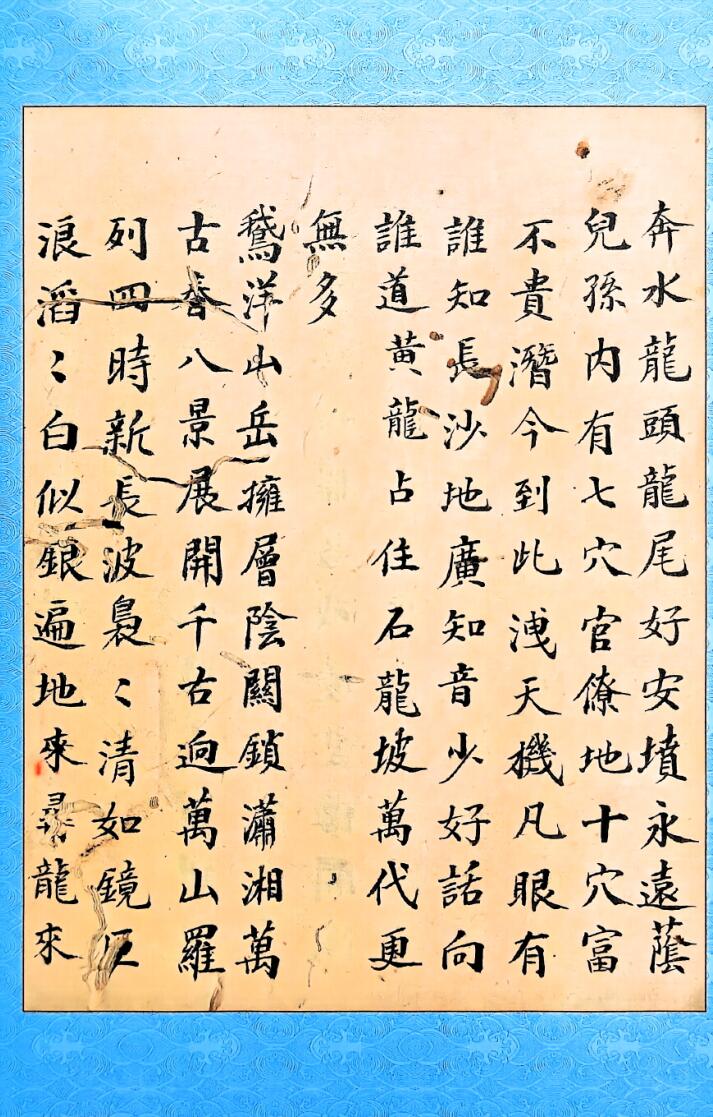 奔水龍頭龍尾好安墳永遠蔭
兒孫内有七穴官僚地十穴富
不貴潛今到此洩天機凡眼有
誰知長沙地廣知音少好話向
誰道黄龍占住石龍坡萬代更
無多
鵞洋山岳擁層陰關鎖瀟湘萬
古春八景展開千古迥萬山羅
列四時新長波裊〻清如鏡巨
浪滔〻白似銀遍地來尋龍來